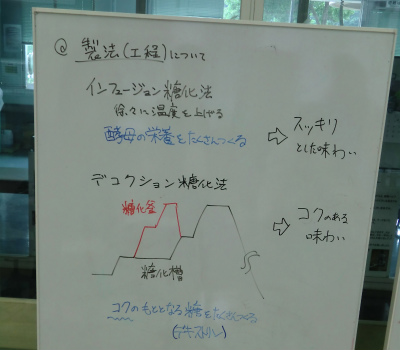 ◎ 製法(工程)について
インフュージョン糖化法
徐々に温度を上げる
酵母の栄養をたくさんつくる
⇨ スッキリ
とした味わい
デコクション糖化法
糖化釜
糖化槽
⇨ コクのある
味わい
コクのもととなる糖をたくさんつくる
(デキストリン)